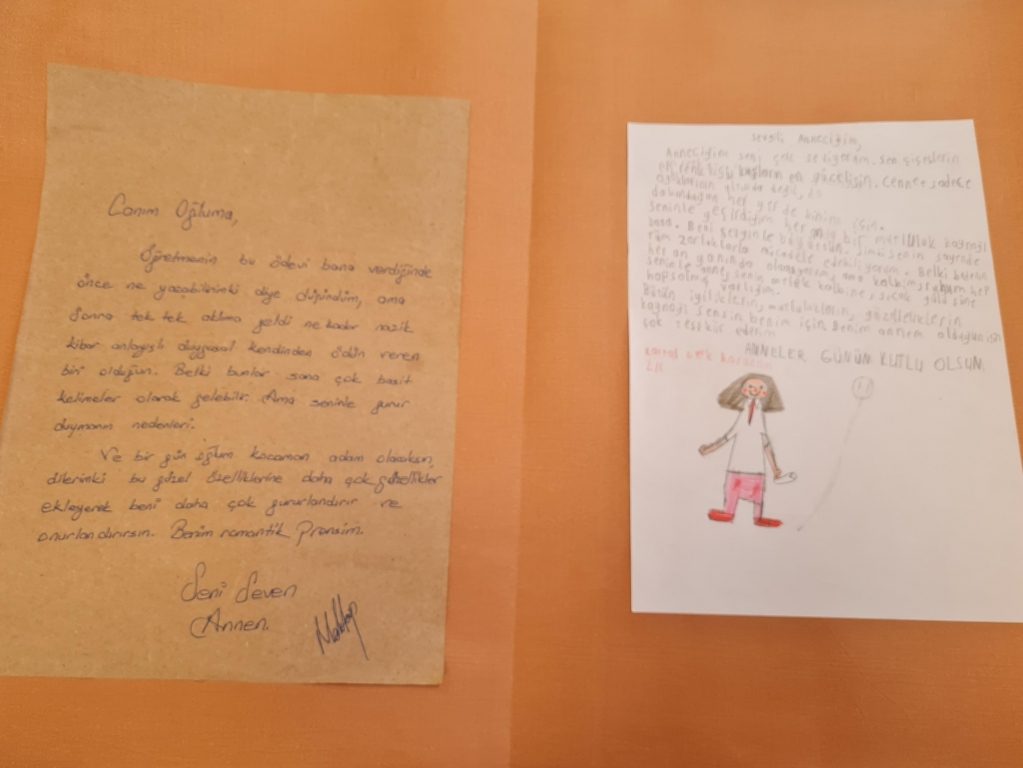 Canım Oğluma,
Öğretmenin bu ödevi bana verdiğinde
önce ne yazabilirimki diye düşündüm, ama
sonra tek tek aklıma geldi ne kadar nazik
kibar anlayışlı duygusal kendinden ödün veren
biri olduğun. Belki bunlar sana çok basit
kelimeler olarak gelebilir. Ama seninle gurur
duymamın nedenleri.
Ve bir gün oğlum kocaman adam olacaksın,
dilerimki bu güzel özelliklerine daha çok güzellikler
ekleyerek beni daha çok gururlandırır ve
onurlandırırsın. Benim romantik Prensim.
Seni Seven
Annen.
Sevgili Anneciğim,
Anneciğim seni çok seviyorum. Sen çiçeklerin
en renklisi, kuşların en güzelisin. Cennet sadece
ayaklarının altında değil,
her yerde benim için.
Seninle geçirdiğim her bir mutluluk kaynağı
bana. Beni sevginle büyütürsün, senin sayende
tüm zorluklarla mücadele edebiliyorum. Belki
her an yanında olamıyorum, ama kalbim ruhum hep
seninle anne, senin melek kalbine, sıcak
hapsolmuş varlığım.
Bütün iyiliklerin, mutlulukların, güzelliklerin
kaynağı sensin benim için benim annem olduğun için
çok teşekkür ederim
ANNELER GÜNÜN KUTLU OLSUN.